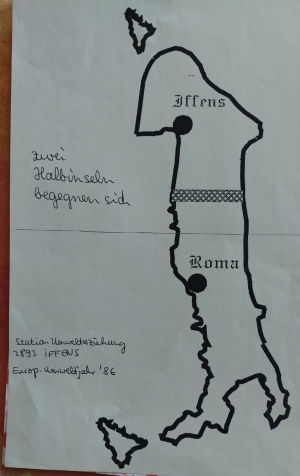 Iffens
zwei
Halbinseln
begegnen sich
Roma
Station Umwelterziehung
2893 IFFENS
Europ. Umweltjahr '86